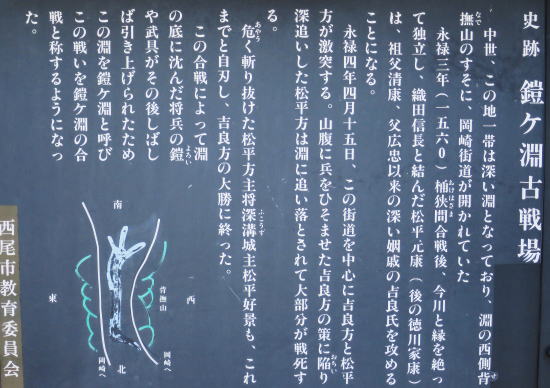 史跡 鎧ケ淵古戦場
中世、この地一帯は深い淵となっており、淵の西側背
撫山のすそに、岡崎街道が開かれていた
永禄三年（一五六〇）桶狭間合戦後、今川と縁を絶っ
て独立し、織田信長と結んだ松平元康（後の徳川家康）
は、祖父清康、父広忠以来の深い姻戚の吉良氏を攻める
ことになる。
永禄四年四月十五日、この街道を中心に吉良方と松平
方が激突する。山腹に兵をひそませた吉良方の策に陥り
深追いした松平方は淵に追い落とされて大部分が戦死す
る。
危く斬り抜けた松平方主将深溝城主松平好景も、これ
までと自刃し、吉良方の大勝に終った。
この合戦によって淵
の底に沈んだ将兵の鎧
や武具がその後しばし
ば引き上げられたため
この淵を鎧ケ淵と呼び
この戦いを鎧ケ淵の合
戦と称するようになっ
た。
南
西
東
北
背撫山
岡崎へ
岡崎へ
西尾市教育委員会